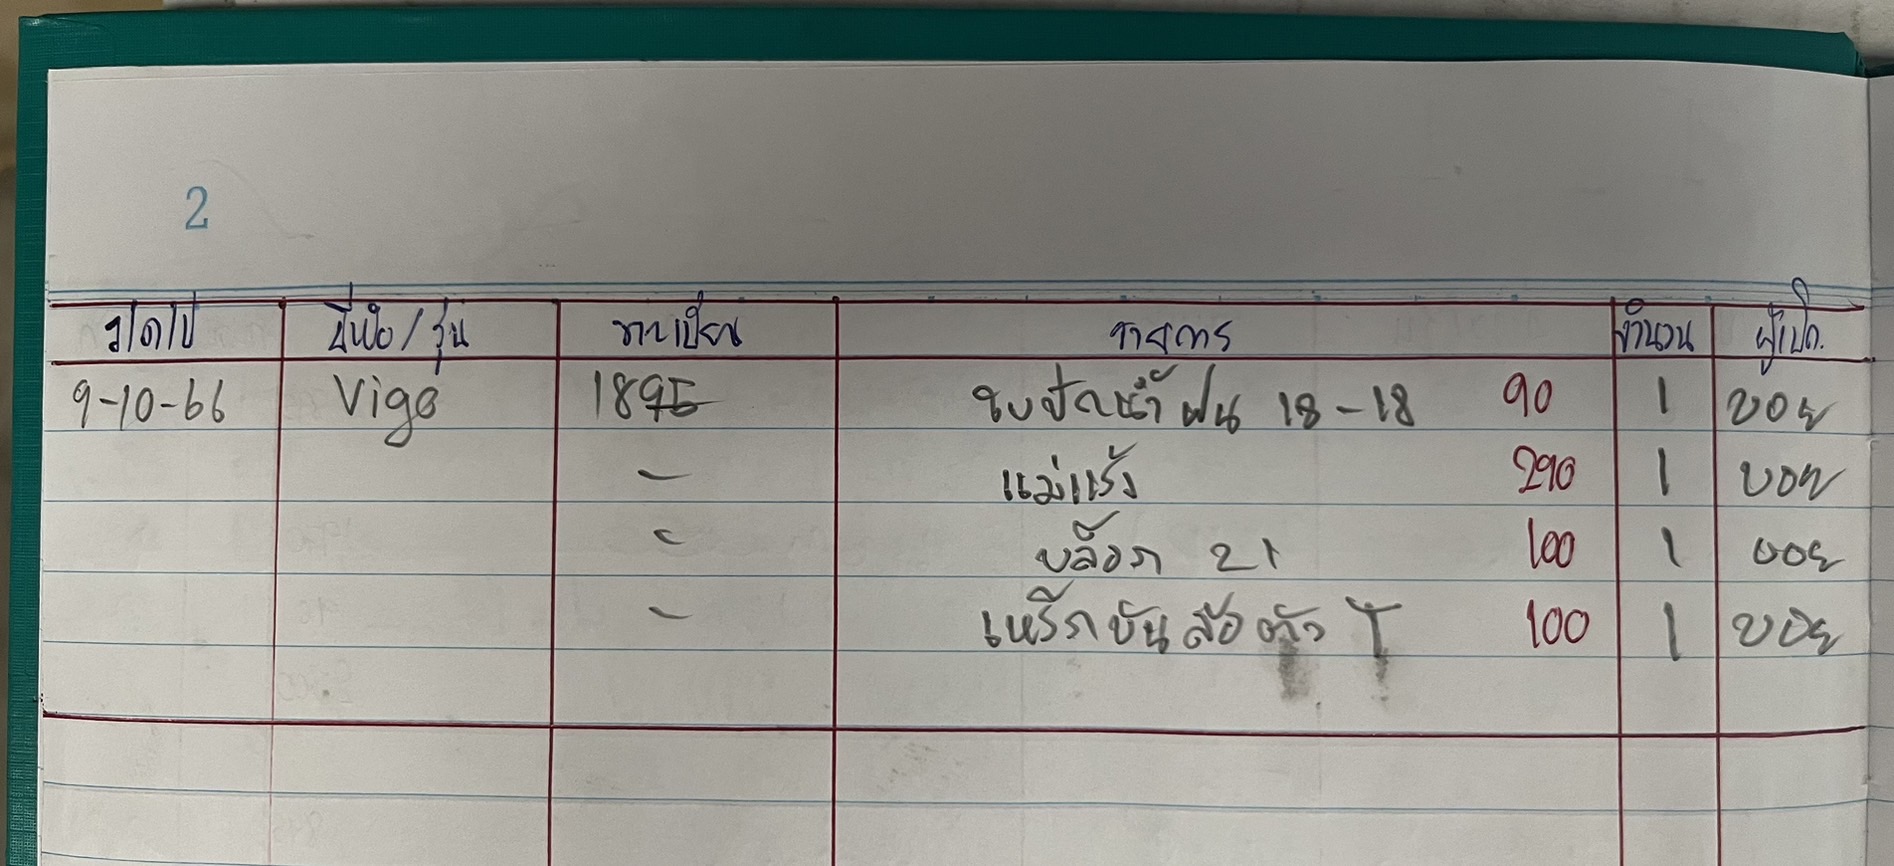 2
ว/ด/ป ยี่ห้อ/รุ่น ทะเบียน รายการ จำนวน ผู้เบิก.
9-10-66 Vigo 1895 ใบปัดน้ำฝน 18-18 90 1 บอย
- แม่แรง 290 1 บอย
- บล็อก 21 100 1 บอย
- เหล็กขันล้อตัว T 100 1 บอย